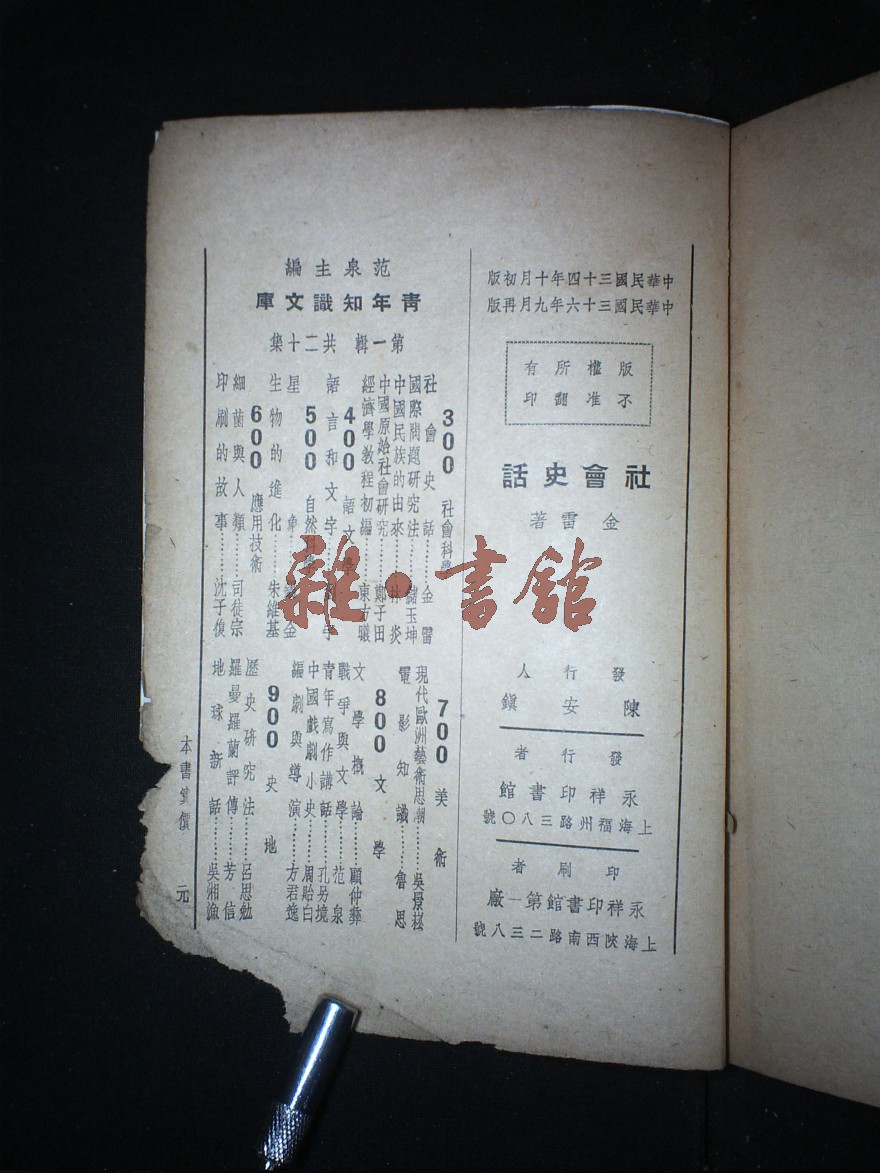 中華民國三十四年十月初版
中華民國三十六年九月再版
版權所有
不准翻印
社會史話
金雷著
發行人
陳安鎮
發行者
永祥印書館
上海福州路三八〇號
印刷者
永祥印書館第一廠
上海陝西南路二三八號
范泉主編
青年知識文庫
第一輯 共二十集
300 社會科學
社會史話……金雷
國際問題研究法……儲玉坤
中國民族的由來……林炎
中國原始社會研究……鄭子田
經濟學教程初編……東方曦
400 語文學
語言和文字……
500 自然科學
星象……金
生物的進化……朱維基
600 應用技術
細菌與人類……司徒宗
印刷的故事……沈子復
700 美術
現代歐洲藝術思潮……吳景崧
電影知識……魯思
800 文學
文學概論……顧仲彝
戰爭與文學……范泉
青年寫作講話……孔另境
中國戲劇小史……周貽白
編劇與導演……方君逸
900 史地
歷史研究法……呂思勉
羅曼羅蘭評傳……芳信
地球新話……吳湘漁
本書實價 元
雜·書館